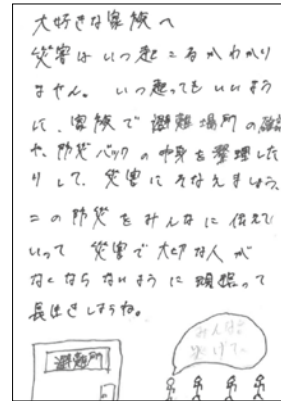 大好きな家族へ
災害はいつ起こるかわかり
ません。いつ起ってもいいよう
に、家族で避難場所の確認
や、防災バックの中身を整理した
りして、災害にそなえましょう。
この防災をみんなに伝えて
いって災害で大切な人が
なくならないように頑張って
長生きしようね。
みんな
逃げて。
避難所